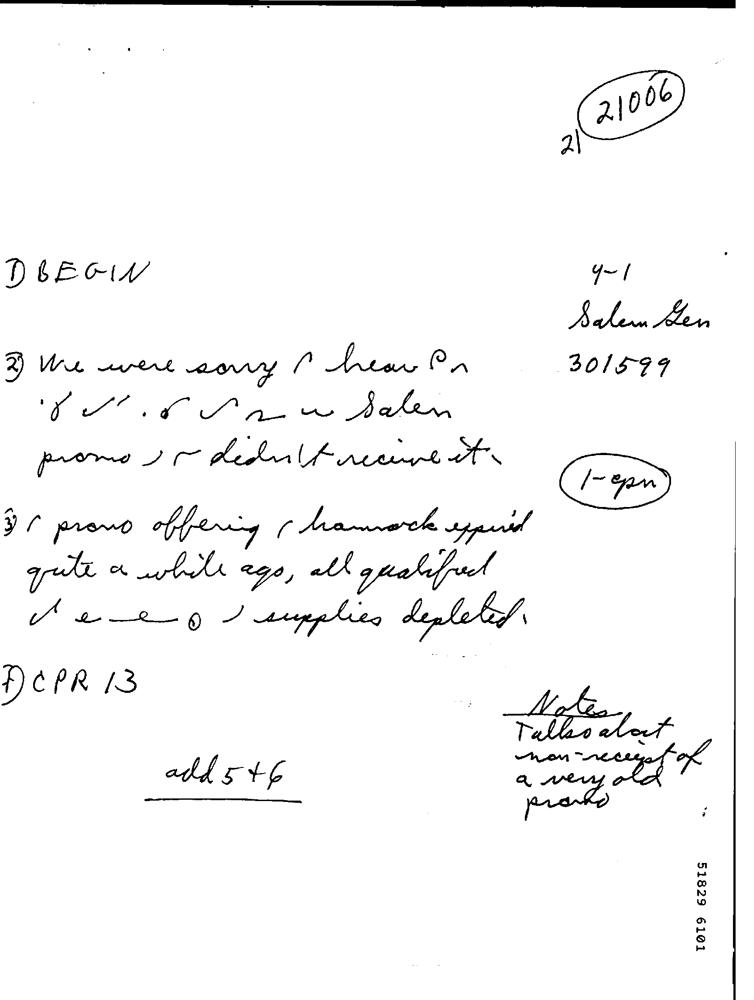 21006
21
1) BEGIN
4-1
Salem Gen
301599
2) We were sorry hear
Salem
promo didn't receive it.
1-cpn
3) promo offering hammock expired
quite a while ago, all qualified
supplies depleted.
F) CPR 13
add 5+6
Notes
Talks about
non-receipt of
a very old
promo
51829 6101